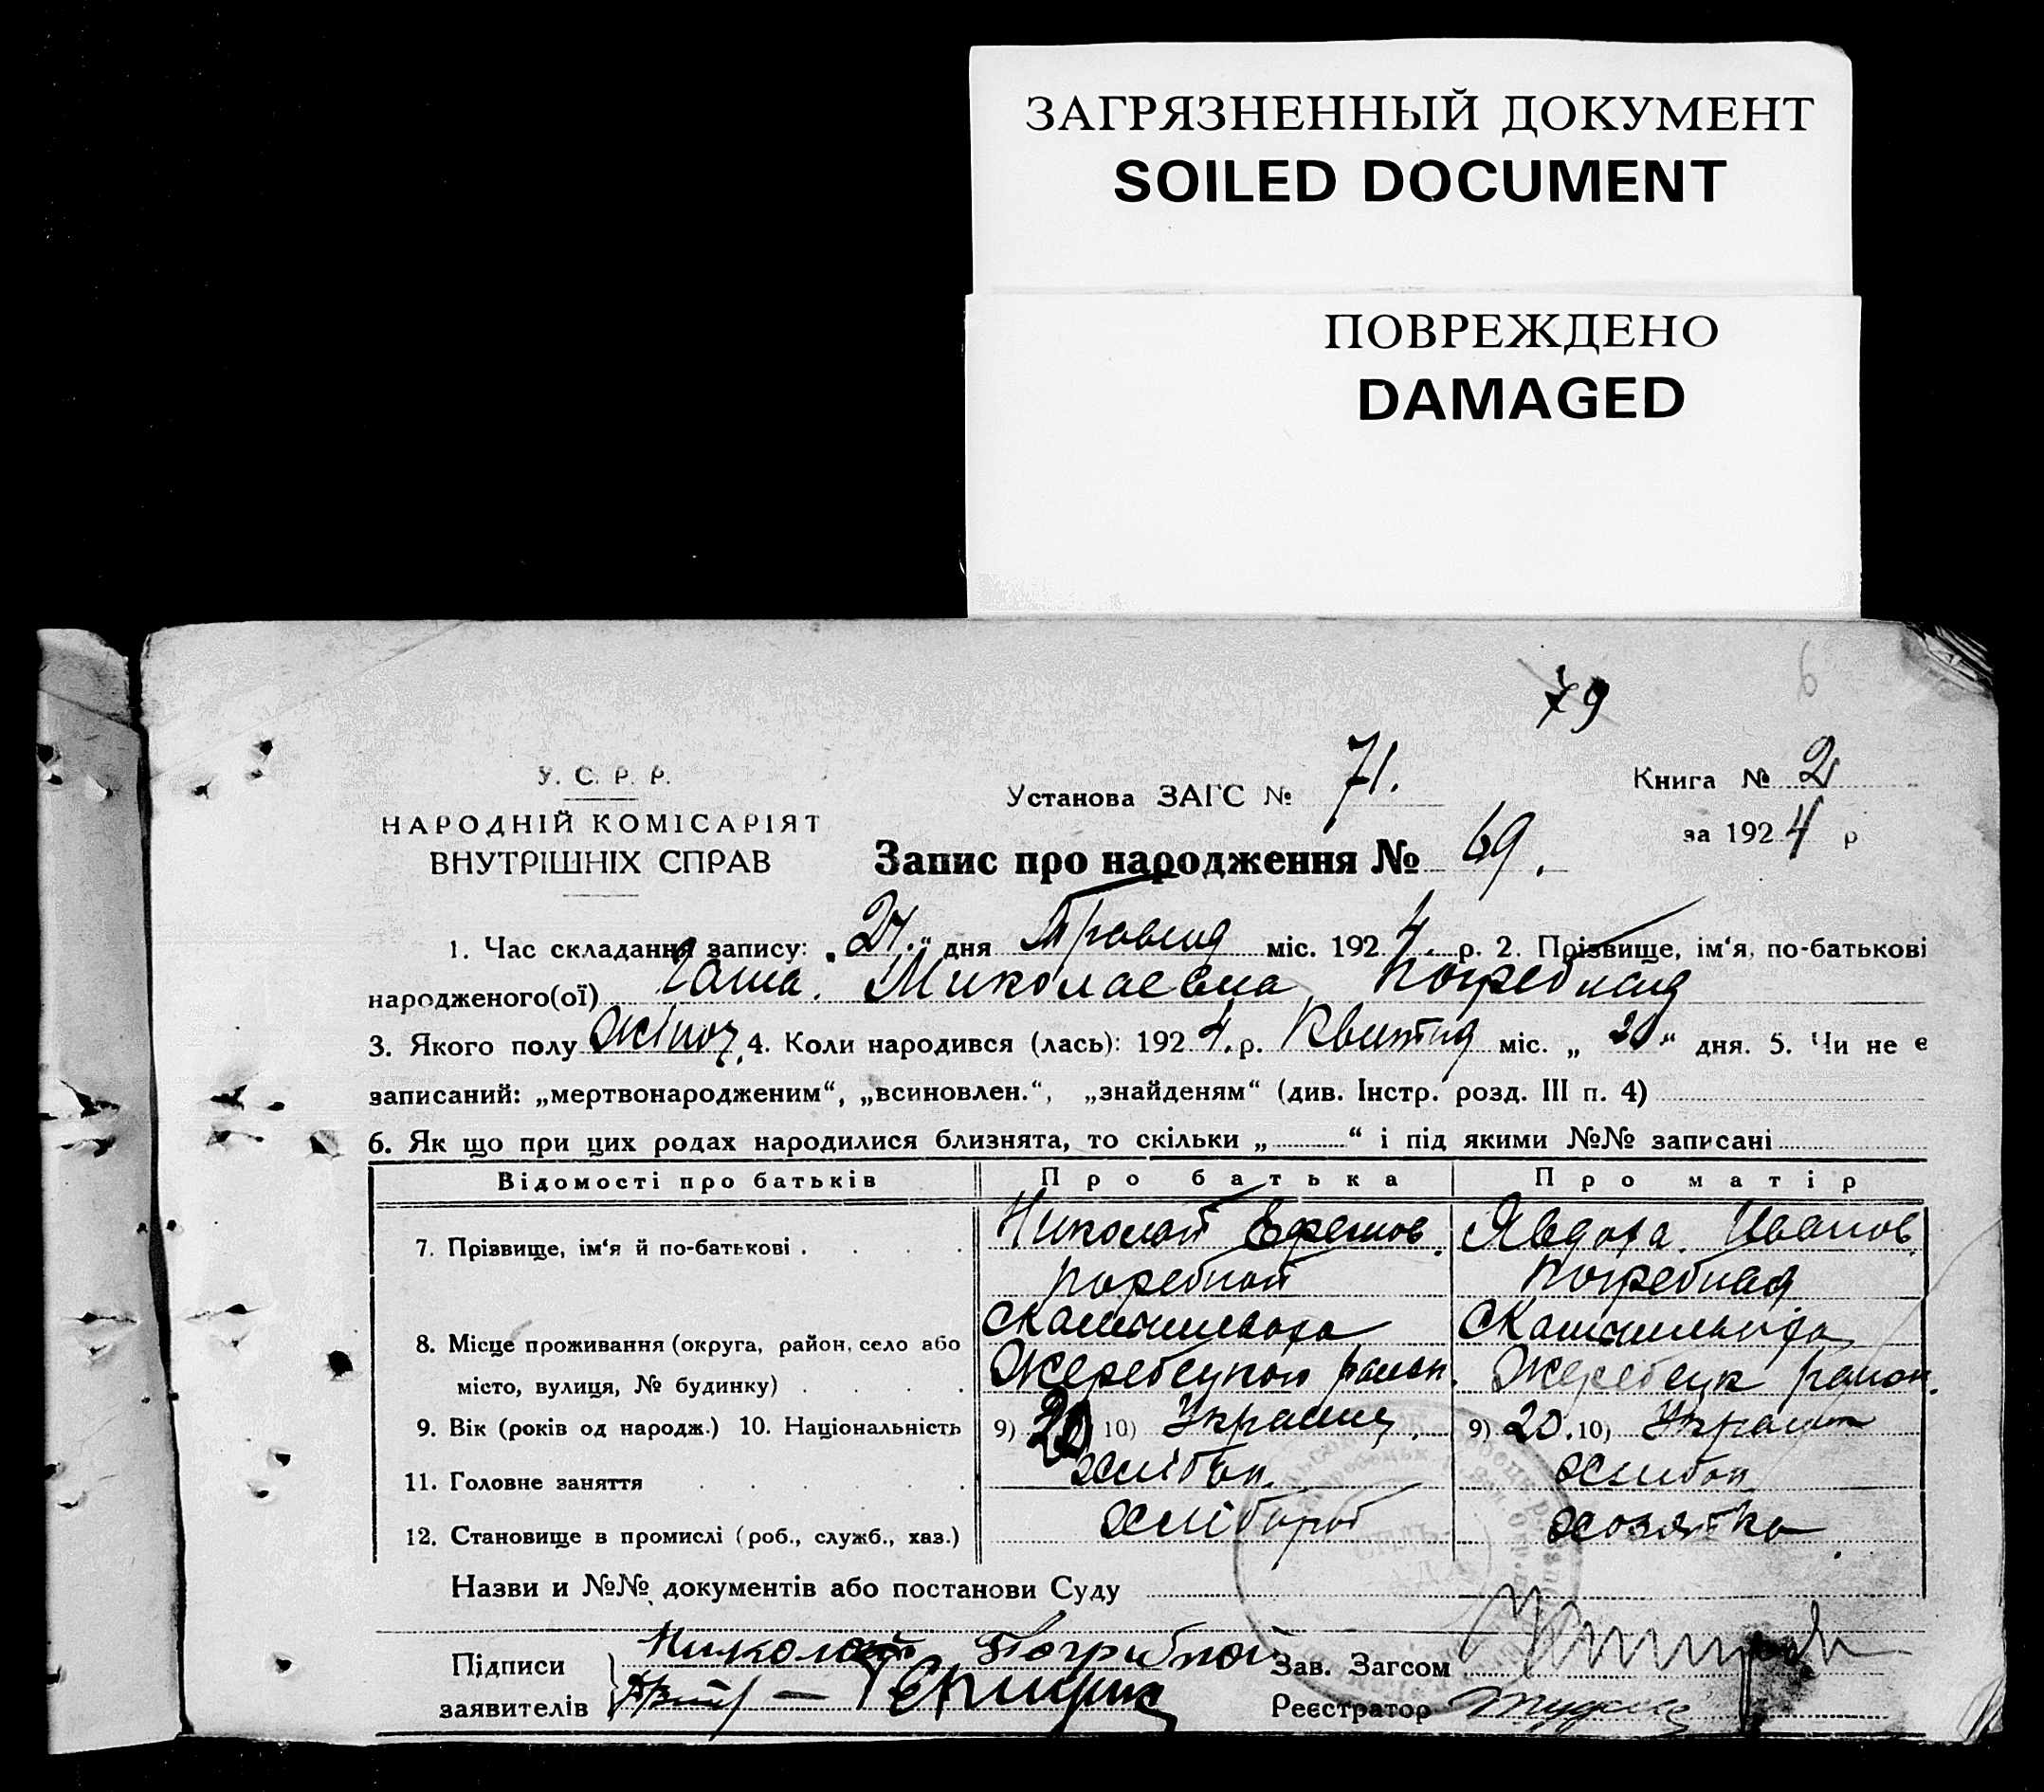 ЗАГРЯЗНЕННЫЙ ДОКУМЕНТ
SOILED DOCUMENT
ПОВРЕЖДЕНО
DAMAGED
79
6
У. С. Р. Р.
НАРОДНІЙ КОМІСАРІЯТ
ВНУТРІШНІХ СПРАВ
Установа ЗАГС № 71.
Книга № 2
за 1924 р
Запис про народження № 69.
1. Час складання запису: „27“ дня Травня міс. 1924 р. 2. Прізвище, ім‘я, по-батькові
народженого(ої) Миколаевна Погребная
3. Якого полу жіноч. 4. Коли народився (лась): 1924 р. Квитня міс. „20“ дня. 5. Чи не є
записаний: „мертвонародженим“, „всиновлен.“, „знайденям“ (див. Інстр. розд. III п. 4)
6. Як що при цих родах народилися близнята, то скільки „ “ і під якими №№ записані
Відомості про батьків Про батька Про матір
7. Прізвище, ім‘я й по-батькові . . . . . Николай Ефимов. Явдоха Иванов.
Погребная
8. Місце проживання (округа, район, село або
місто, вулиця, № будинку) . . . . . Жеребецкого район. Жеребецк район.
9. Вік (років од народж.) 10. Національність 9) 20 10) Украинц. 9) 20. 10) Украин
11. Головне заняття . . . . . . хлібоп. хлибоп
12. Становище в промислі (роб., служб., хаз.) хлібороб хозяйка
Назви и №№ документів або постанови Суду
Підписи Николай Погрибной Зав. Загсом
заявителів Реєстратор